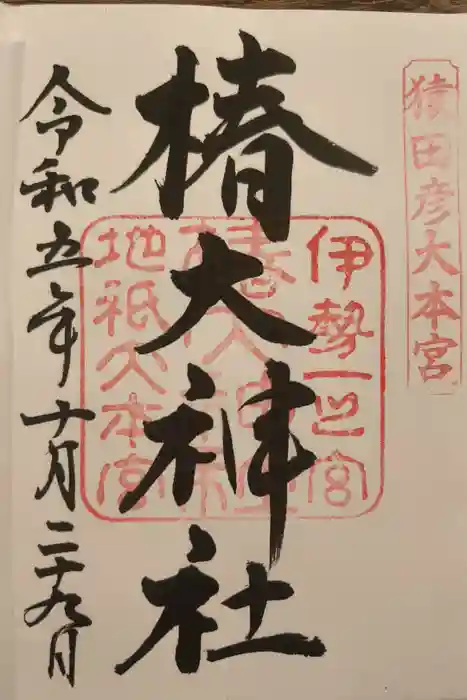 猿田彦大本宮
伊勢一之宮
椿大神社
地祇大本宮
椿大神社
令和五年十月二十九日